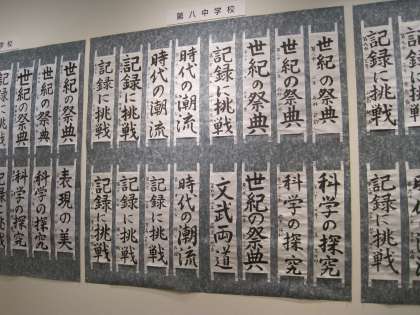 第八中学校
学校
世紀の祭典
世紀の祭典
世紀の祭典
記録に挑戦
時代の潮流
時代の潮流
記録に挑戦
記録に挑戦
科学の探究
科学の探究
世紀の祭典
文武両道
時代の潮流
記録に挑戦
記録に挑戦
記録に挑戦
世紀の祭典
世紀の祭典
世紀の祭典
記録に挑戦
表現の美
科学の探究
科学の探究
記録に挑戦
記録に挑戦
記録に挑戦